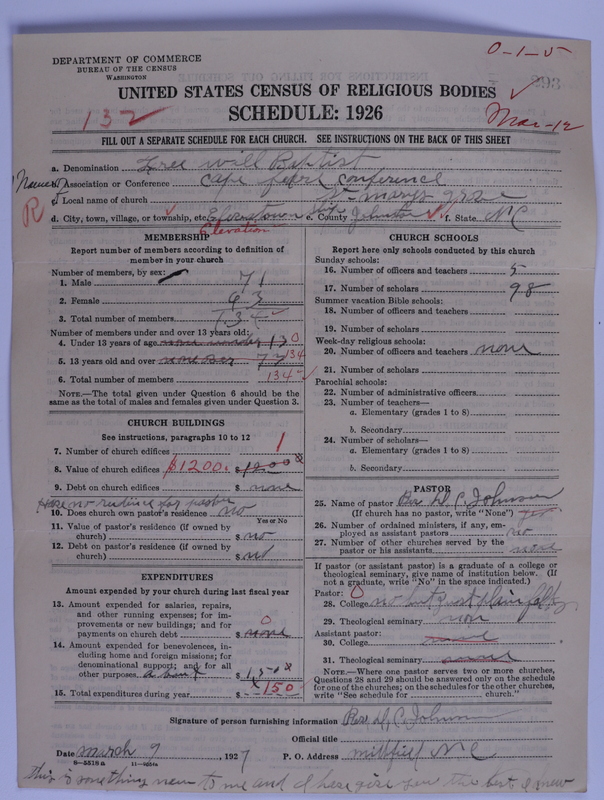 DEPARTMENT OF COMMERCE
BUREAU OF THE CENSUS
WASHINGTON
0-1-5
UNITED STATES CENSUS OF RELIGIOUS BODIES
132
SCHEDULE: 1926
Mar-12
FILL OUT A SEPARATE SCHEDULE FOR EACH CHURCH. SEE INSTRUCTIONS ON THE BACK OF THIS SHEET
a. Denomination Free will Baptist
b. Association or Conference Cape fear Conference
c. Local name of church St marys
R
d. City, town, village, or township, etc. e. County Johnston f. State NC
Elevation
MEMBERSHIP
Report number of members according to definition of
member in your church
Number of members, by sex:
1. Male 71
2. Female 63
3. Total number of members 134
Number of members under and over 13 years old:
4. Under 13 years of age 0
5. 13 years old and over 134
6. Total number of members 134
NOTE.—The total given under Question 6 should be
same as the total of males and females given under Question 3.
CHURCH BUILDINGS
See instructions, paragraphs 10 to 12
7. Number of church edifices 1
8. Value of church edifices $1200.
9. Debt on church edifices $ none
Have no for pastor
10. Does church own pastor's residence no
Yes or No
11. Value of pastor's residence (if owned by
church) $ no
12. Debt on pastor's residence (if owned by
church) $ no
EXPENDITURES
Amount expended by your church during last fiscal year
13. Amount expended for salaries, repairs,
and other running expenses; for im-
provements or new buildings; and for
payments on church debt $ none
0
14. Amount expended for benevolences, in-
cluding home and foreign missions; for
denominational support; and for all
other purposes. about $
15. Total expenditures during year $ 150
CHURCH SCHOOLS
Report here only schools conducted by this church
Sunday schools:
16. Number of officers and teachers 5
17. Number of scholars 98
Summer vacation Bible schools:
18. Number of officers and teachers
19. Number of scholars
Week-day religious schools:
20. Number of officers and teachers none
21. Number of scholars
Parochial schools:
22. Number of administrative officers
23. Number of teachers—
a. Elementary (grades 1 to 8)
b. Secondary
24. Number of scholars—
a. Elementary (grades 1 to 8)
b. Secondary
PASTOR
25. Name of pastor Rev D, C, Johnson
(If church has no pastor, write "None")
26. Number of ordained ministers, if any, em-
ployed as assistant pastors no
27. Number of other churches served by the
pastor or his assistants none
If pastor (or assistant pastor) is a graduate of a college or
theological seminary, give name of institution below. (If
not a graduate, write "No" in the space indicated.)
Pastor: 0
28. College no but just plain
29. Theological seminary non
Assistant pastor:
30. College
31. Theological seminary
NOTE.—Where one pastor serves two or more churches,
Questions 28 and 29 should be answered only on the schedule
for one of the churches; on the schedules for the other churches,
write "See schedule for church."
Signature of person furnishing information Rev. D, C, Johnson
Official title
Date march 9, 1927 P. O. Address NC
8—5518a
This is something new to me and I have give you the best I know